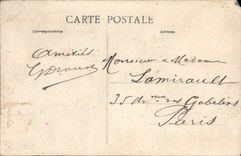 CARTE POSTALE
Correspondance
Adresse
Amitiés
Monsieur & Madame
Lamirault
35 des Gobelins
Paris